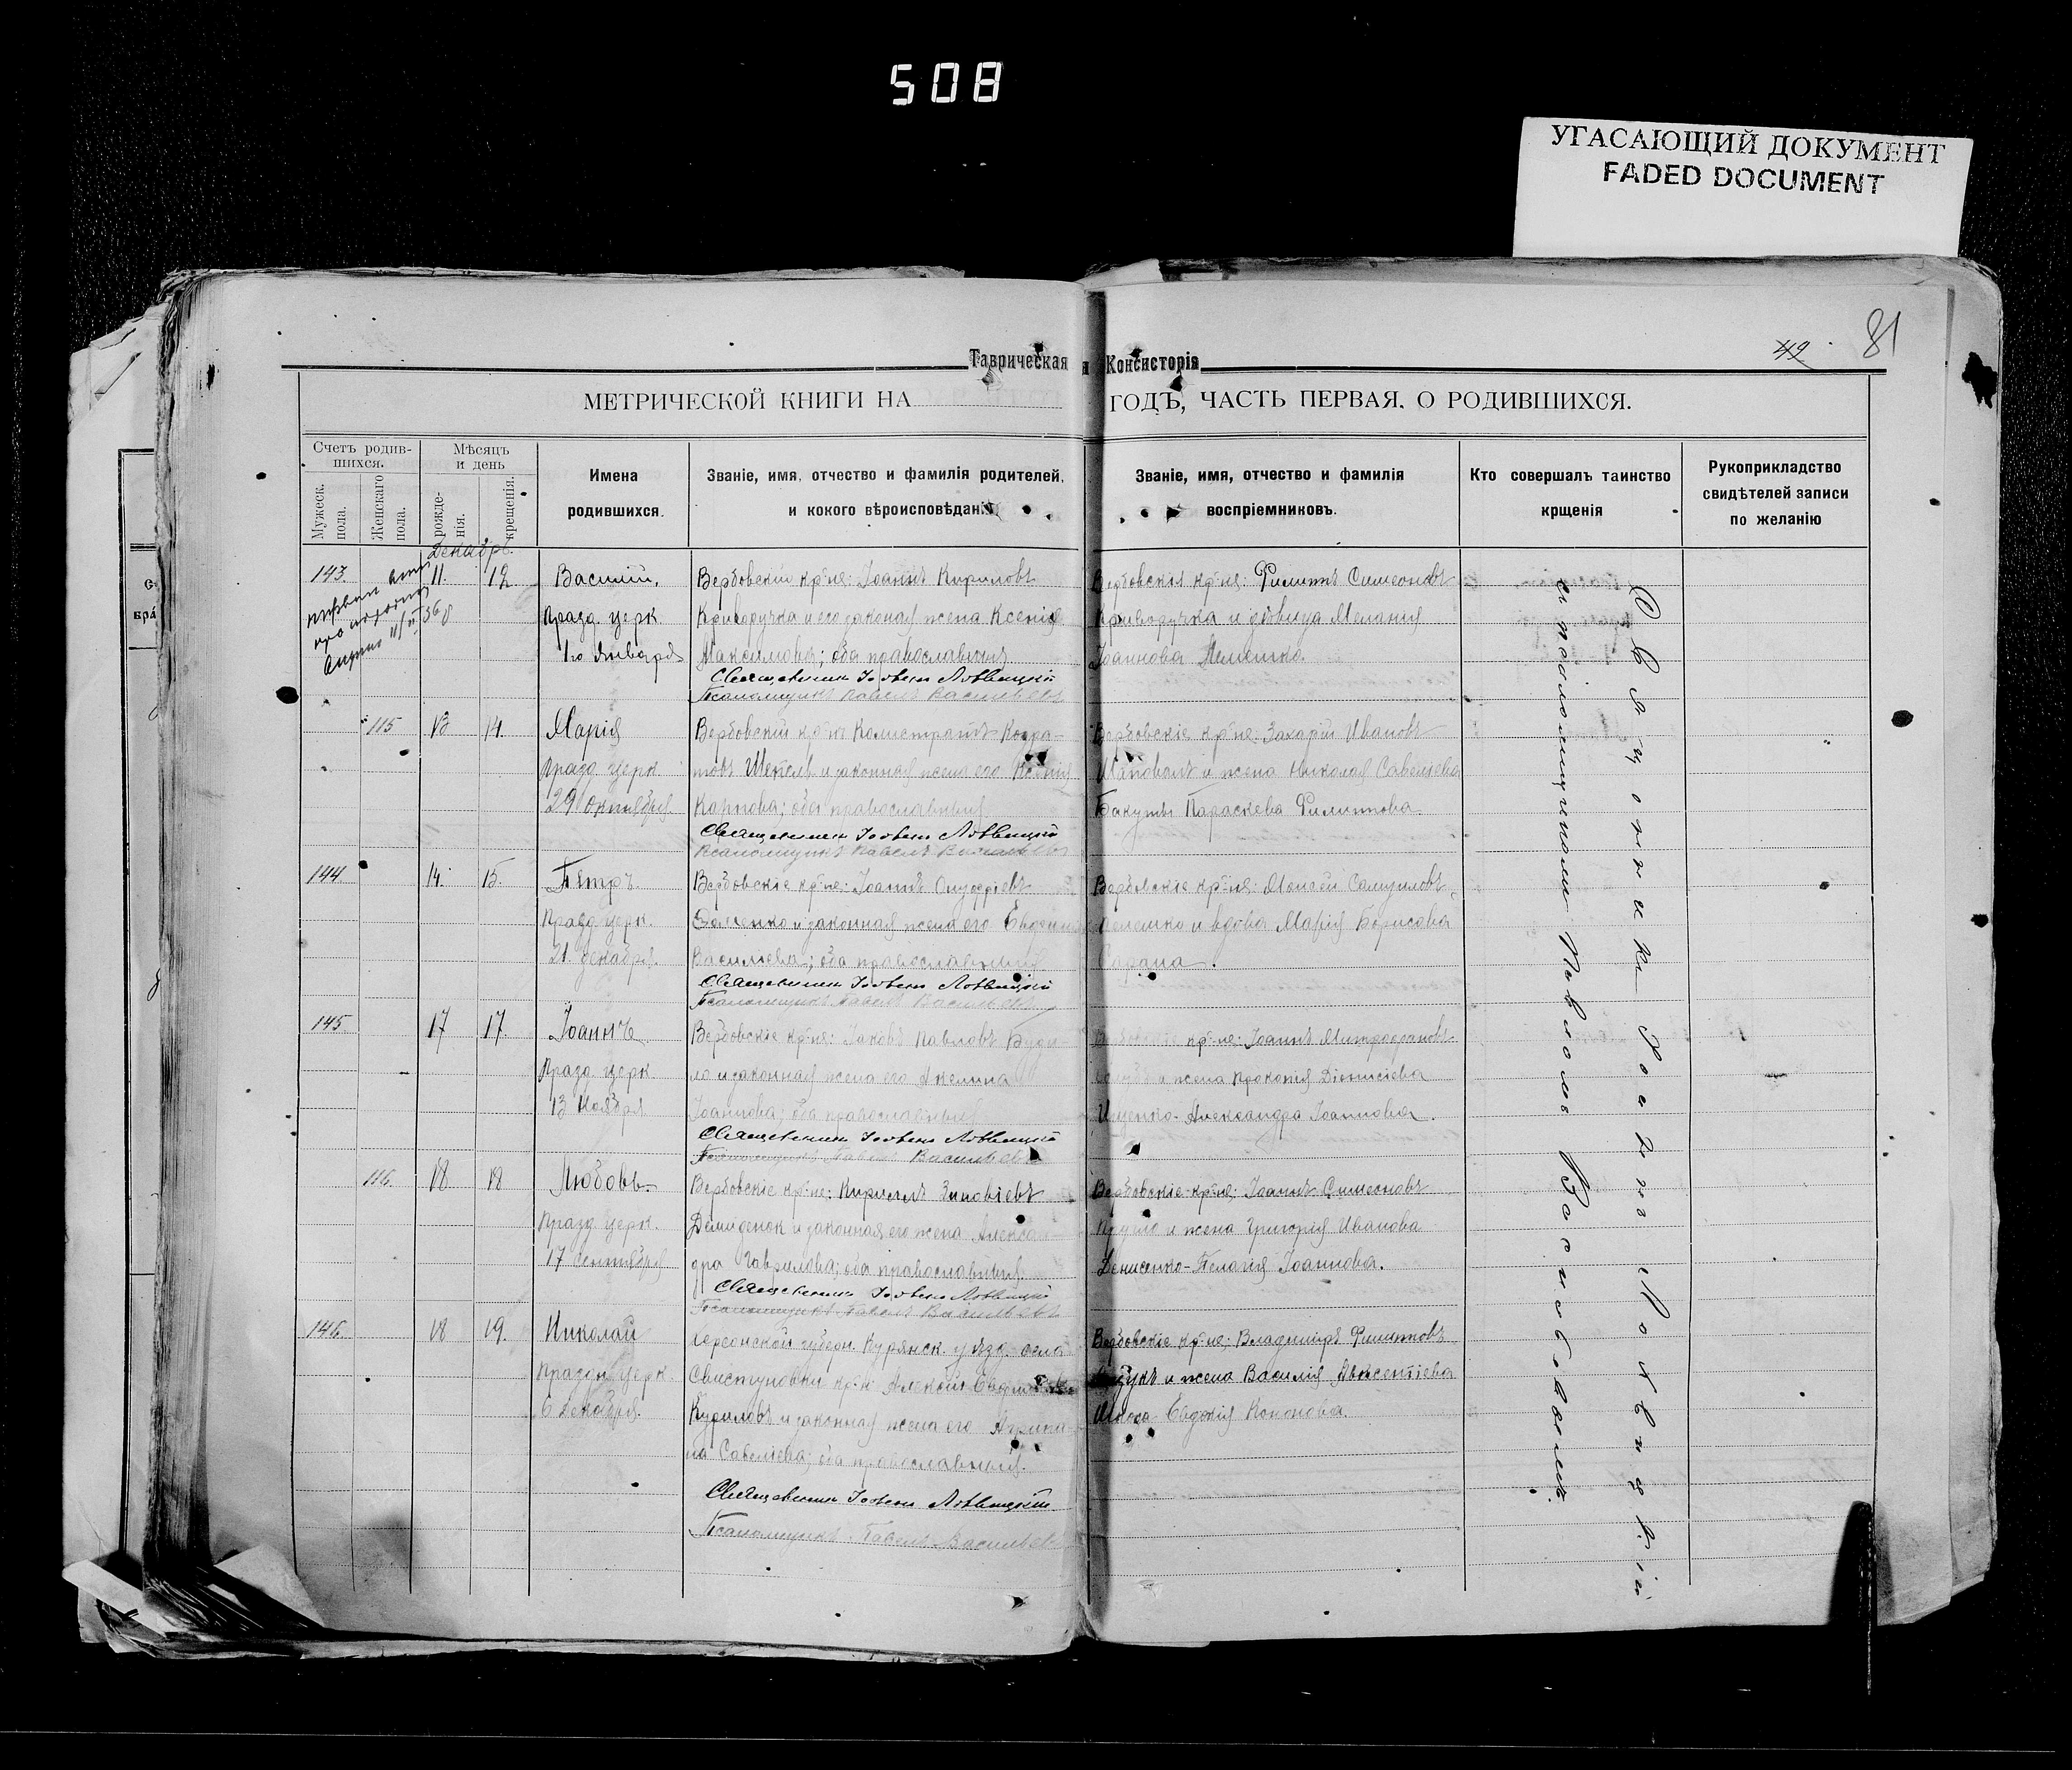 508
УГАСАЮЩИЙ ДОКУМЕНТ
FADED DOCUMENT
49
81
Таврическая Консисторія
МЕТРИЧЕСКОЙ КНИГИ НА ГОДЪ, ЧАСТЬ ПЕРВАЯ, О РОДИВШИХСЯ.
Счетъ родив-
шихся.
Мужеск.
пола.
Женскаго
пола.
Мѣсяцъ
и день
рожде-
нія.
крещенія.
Имена
родившихся.
Званіе, имя, отчество и фамилія родителей,
и кокого вѣроисповѣданія
Званіе, имя, отчество и фамилія
воспріемниковъ.
Кто совершалъ таинство
крщенія
Рукоприкладство
свидѣтелей записи
по желанію
Декабрь.
143. 11. 12 Василій,
Празд. церк.
1го Января
Вербовскіи кр-не: Іоаннъ Кириловъ
Криворучка и его законая жена Ксенія
Максимова; оба православныя
Священникъ Іосифъ Лотвицкій
Псаломщикъ Павелъ Васильевъ
Вербовскія кр-не: Филиппъ Симеоновъ
Криворучка и дѣвица Меланія
Іоаннова Лемешко.
115 13 14. Марія
Празд. церк.
29 Октября
Вербовскій кр-нъ Калистратъ Кодра-
товъ Шепель и законная жена его Ксенія
Карпова; оба православныя
Священникъ Іосифъ Лотвицкій
Псаломщикъ Павелъ Васильевъ
Вербовскіе кр-не: Захарій Ивановъ
Шаповалъ и жена Николая Савельева
Бакуты Параскева Филиппова.
144 14. 15. Петръ.
Празд. церк.
21. декабря.
Вербовскіе кр-не: Іоаннъ Онуфріевъ
законная жена его
Васильева; оба православныя
Священникъ Іосифъ Лотвицкій
Псаломщикъ Павелъ Васильевъ
Вербовскіе кр-не: Моисей Самуиловъ
Лемешко и вдова Марія Борисова
145 17 17. Іоаннъ
Празд. церк.
13 Ноября
Вербовскіе кр-не: Іаковъ Павловъ
ло и законная жена его Акелина
Іоаннова; оба православныя
Священникъ Іосифъ Лотвицкій
Псаломщикъ Павелъ Васильевъ
кр-не: Іоаннъ Митрофановъ
и жена Прокопія Діонисіева
Ищенко - Александра Іоаннова.
116. 18. 18 Любовь.
Празд. церк.
17 Сентября
Вербовскіе кр-не: Кириллъ Зиновіевъ
Демиденок и законная его жена Алексан-
дра Гаврилова; оба православныя.
Священникъ Іосифъ Лотвицкій
Псаломщикъ Павелъ Васильевъ
Вербовскіе кр-не: Іоаннъ Симеоновъ
и жена Григорія Иванова
Денисенко - Пелагія Іоаннова.
146. 18 19. Николай
Праздн. церк.
6 Декабря.
Херсонской губерн. Курянск. уѣзд. села
Свистуновки кр-н Алексій
Куриловъ и законная жена его Агрипи-
на Савельева; оба православныя.
Священникъ Іосифъ Лотвицкій
Псаломщикъ Павелъ Васильевъ
Вербовскіе кр-не: Владиміръ Филипповъ
и жена Василія Авксентіева
Евдокія Кононова.
Священникъ Іосифъ Лотвицкій
съ псаломщикомъ Павломъ Васильевымъ.